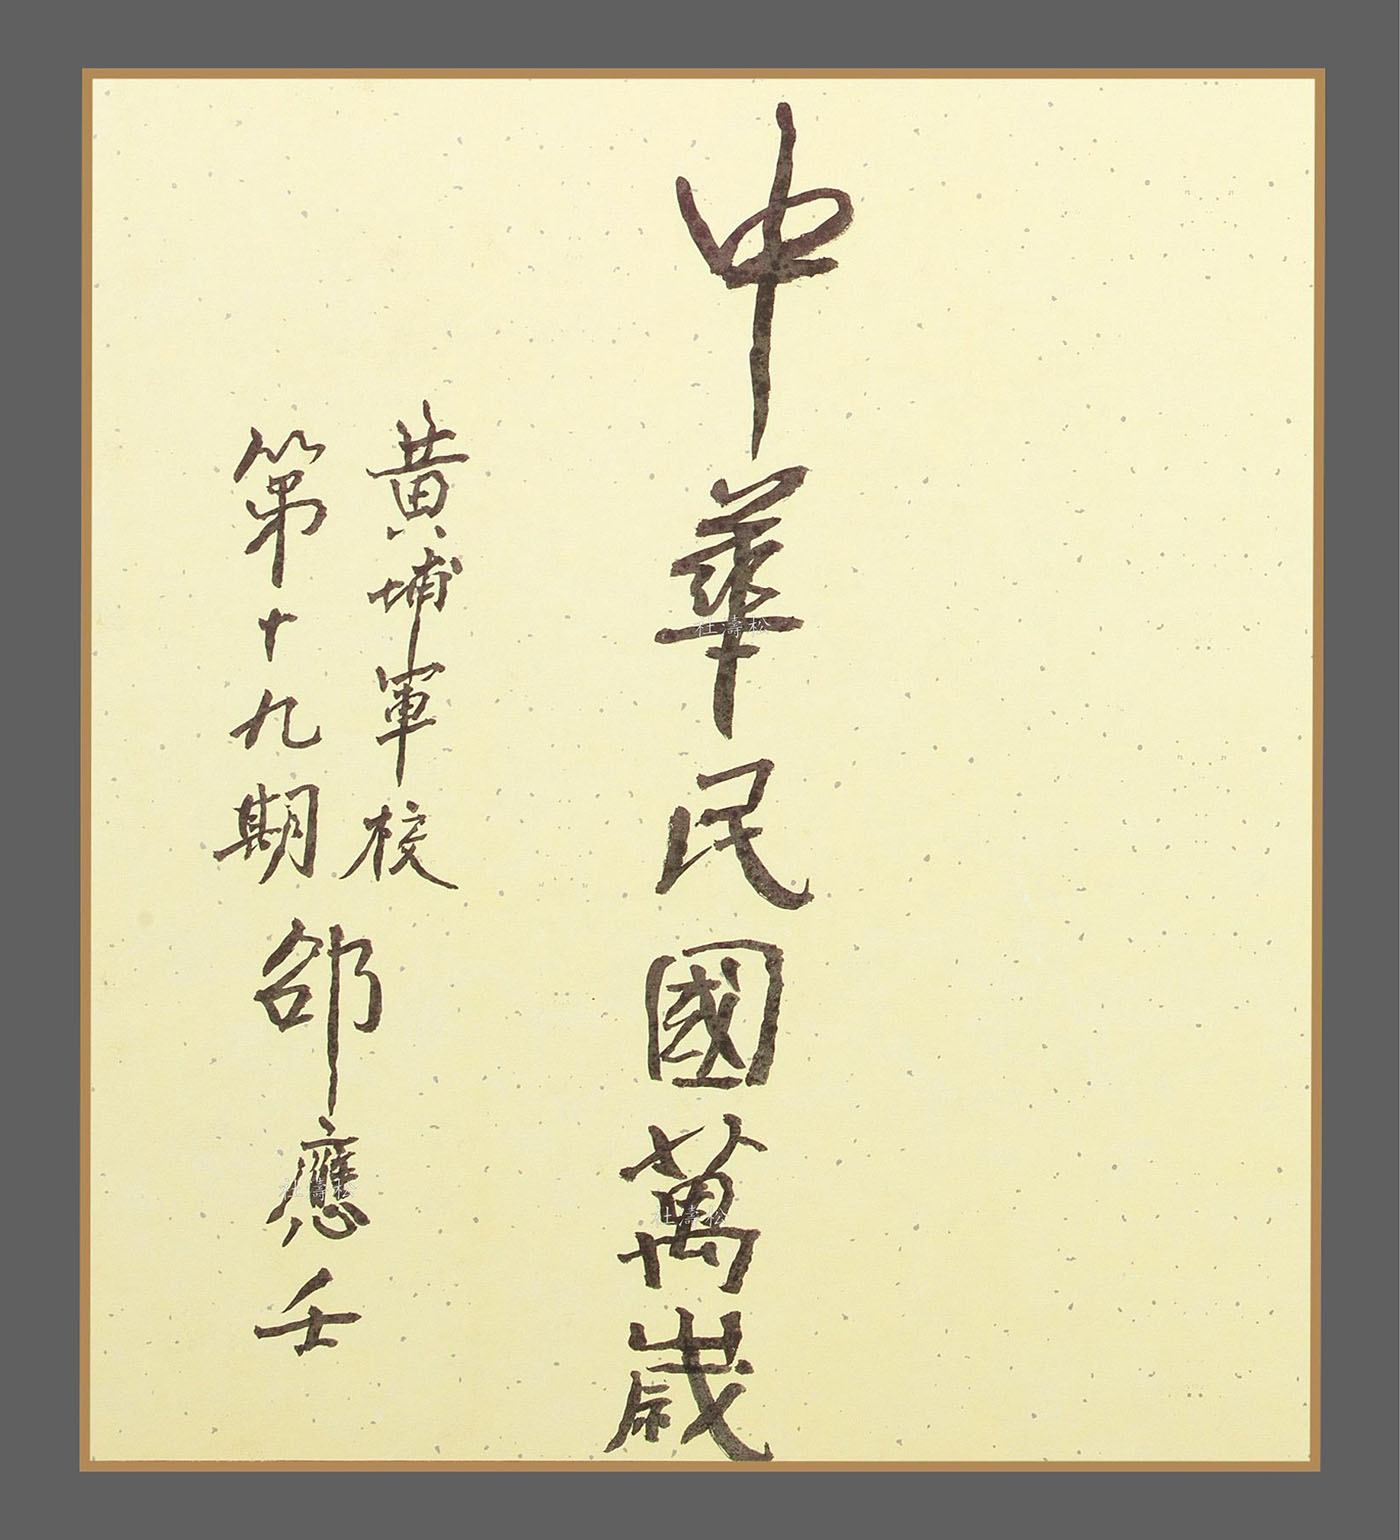 中華民國萬歲
黄埔軍校
第十九期
邵應壬
杜濤松
杜濤松
杜濤松